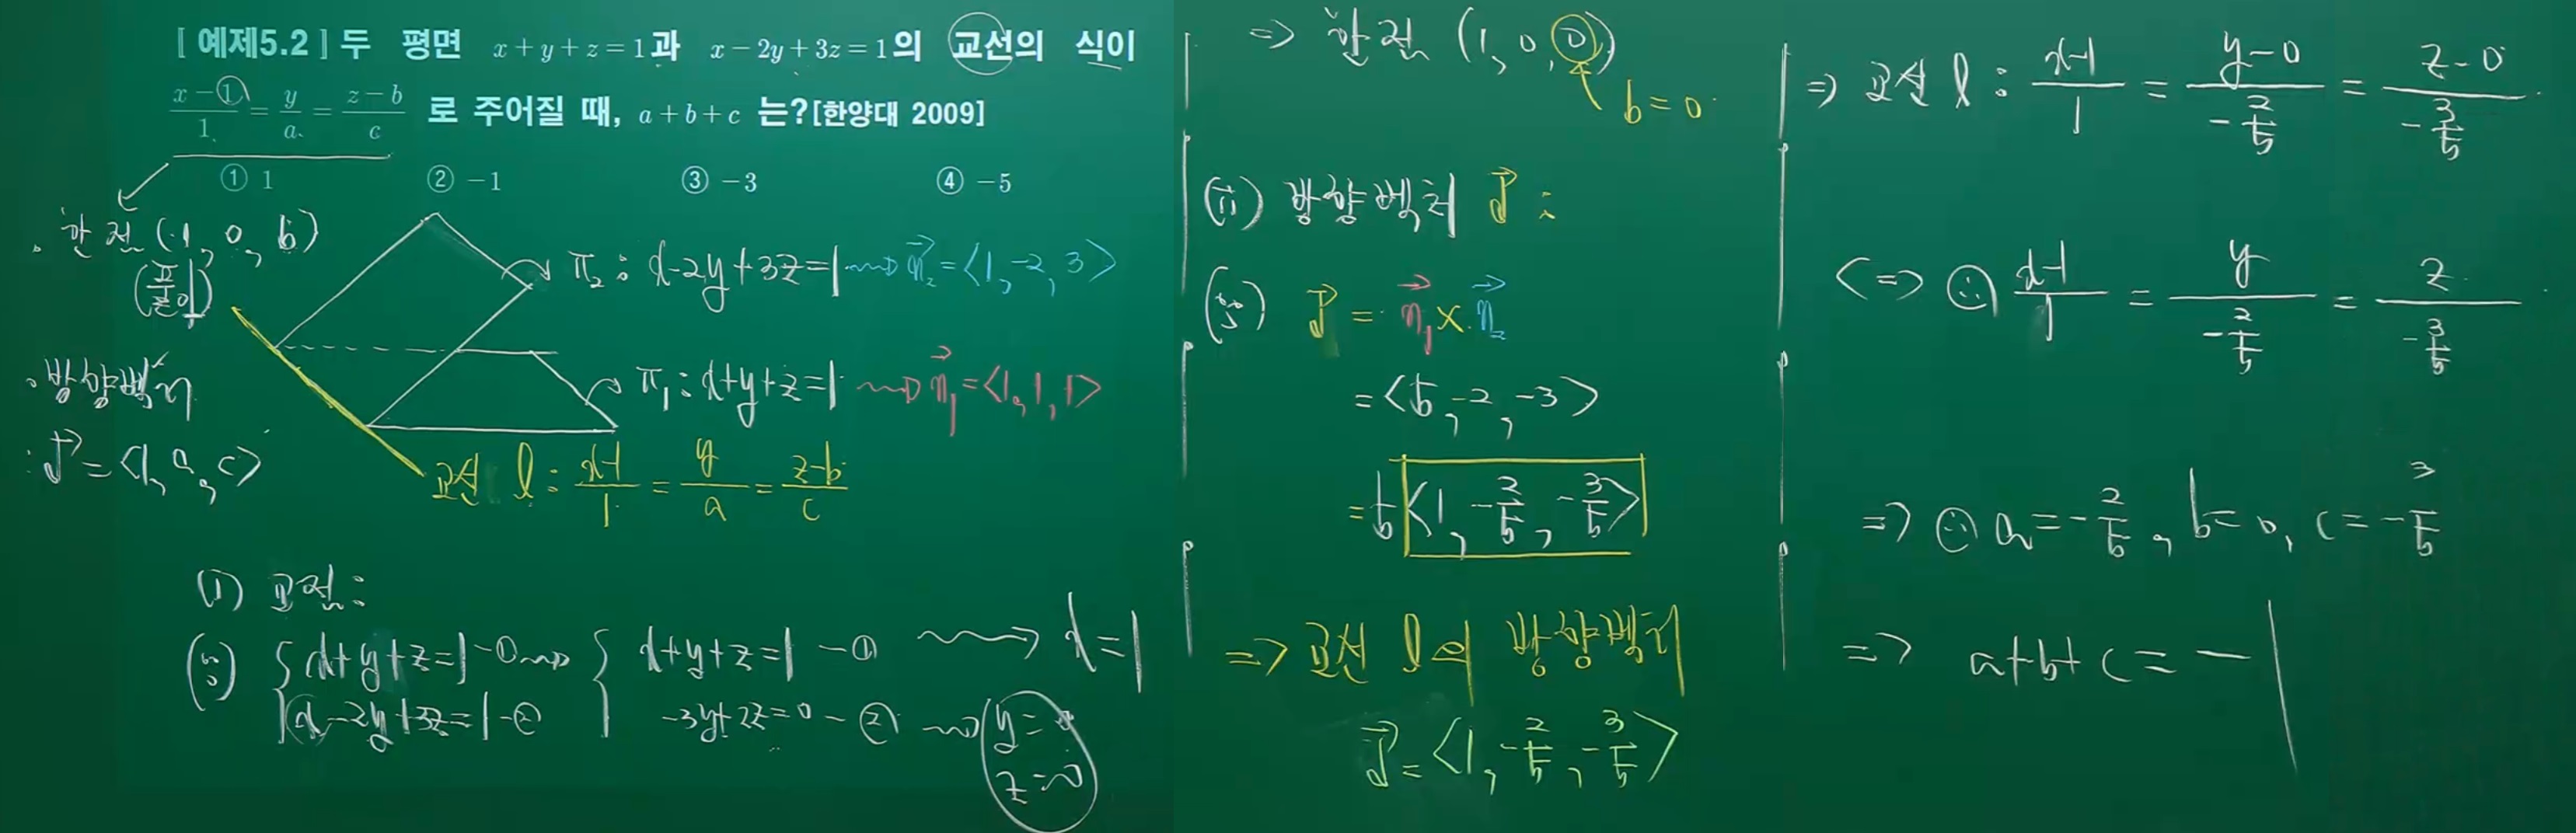 [ 예제5.2 ] 두 평면 x+y+z=1과 x-2y+3z=1의 교선의 식이
(x-1)/1 = y/a = (z-b)/c 로 주어질 때, a+b+c 는?[한양대 2009]
① 1 ② -1 ③ -3 ④ -5
· 한 점 (1, 0, b)
(풀이)
· 방향벡터
: d⃗ = <1, a, c>
π₂ : x-2y+3z=1 ⇝ n⃗₂ = <1, -2, 3>
π₁ : x+y+z=1 ⇝ n⃗₁ = <1, 1, 1>
교선 l : (x-1)/1 = y/a = (z-b)/c
(i) 교점 :
(∵) { x+y+z=1 -① ⇝ { x+y+z=1 -① ⇝ x=1
x-2y+3z=1 -② -3y+2z=0 -② ⇝ y=0
z=0
⇒ 한 점 (1, 0, 0)
b=0
(ii) 방향벡터 d⃗ :
(∵) d⃗ = n⃗₁ × n⃗₂
= <5, -2, -3>
= 5<1, -2/5, -3/5>
⇒ 교선 l의 방향벡터
d⃗ = <1, -2/5, -3/5>
⇒ 교선 l : (x-1)/1 = (y-0)/(-2/5) = (z-0)/(-3/5)
<=> ∴ (x-1)/1 = y/(-2/5) = z/(-3/5)
⇒ ∴ a = -2/5, b=0, c = -3/5
⇒ a+b+c = -1